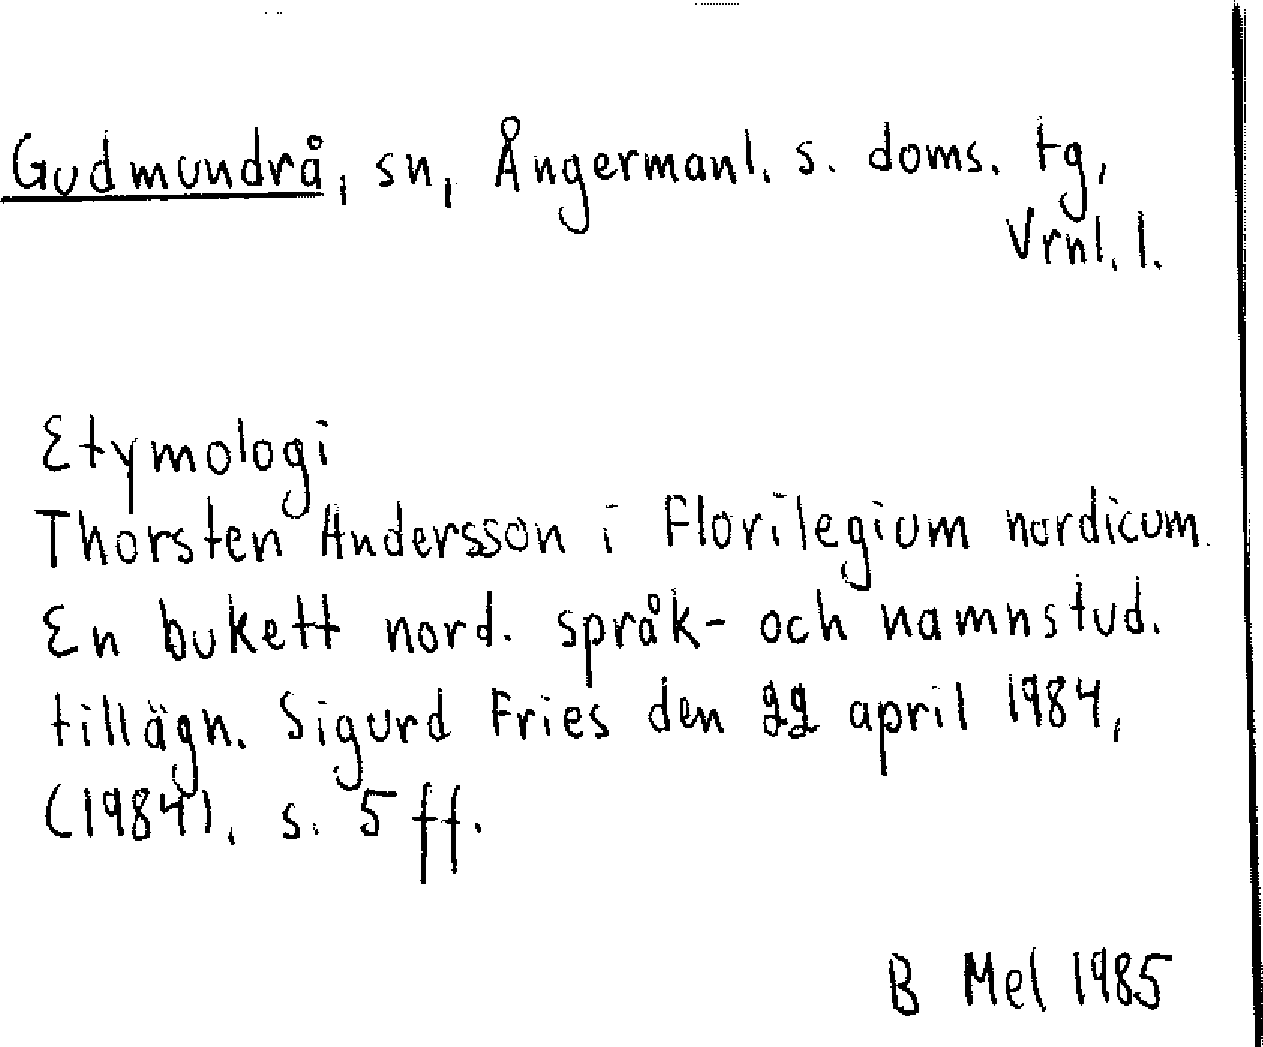 Gudmundrå, sn, Ångermanl. s. doms. tg,
Vrnl. l.
Etymologi
Thorsten Andersson i Florilegium nordicum.
En bukett nord. språk- och namnstud.
tillägn. Sigurd Fries den 22 april 1984,
(1984). s. 5 ff.
B Mel 1985